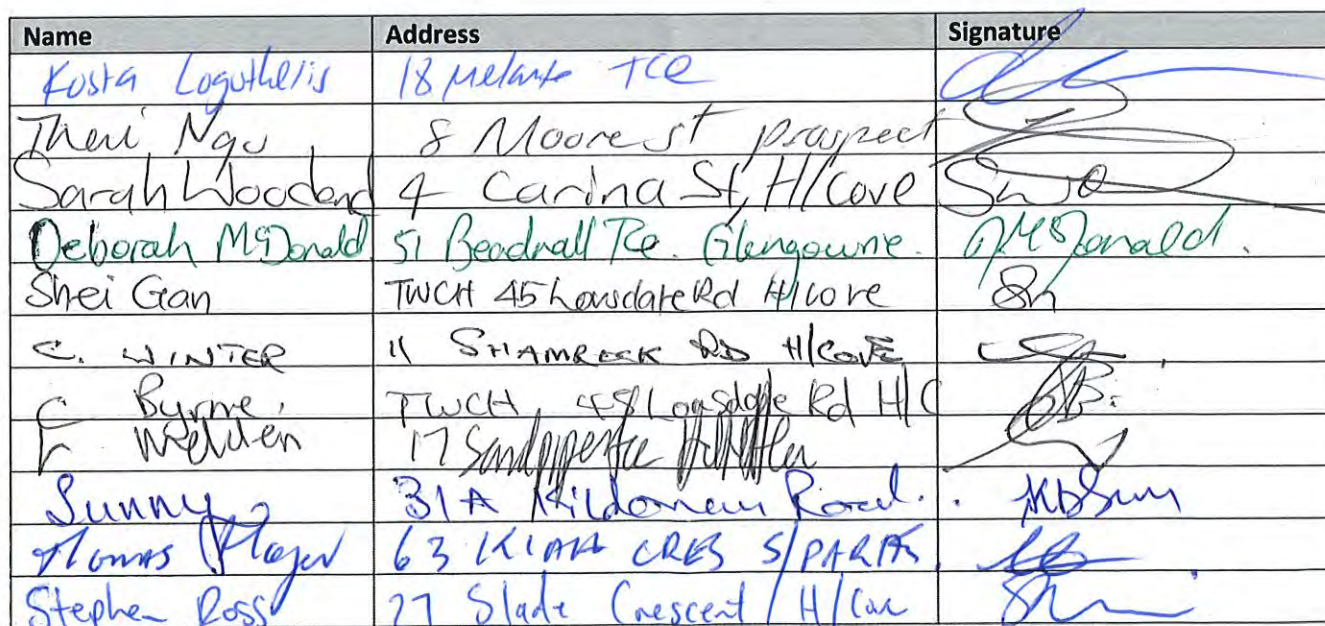 Name Address Signature
Kosta Logothetis 18 Melanto TCE
Theri Ngu 8 Moore st prospect
Sarah Woodend 4 Carina St, H/Cove Swo
Deborah McDonald 51 Beadnall Tce. Glengowrie. DMcDonald.
Shei Gan TWCH 45 Lonsdale Rd H/Cove
C. WINTER 11 SHAMROCK RD H/COVE
C Byrne, TWCH, 48 Lonsdale Rd H/C
17 Sandpiper
Sunny 31A Kildonan Road.
Thomas 63 KIAH CRES S/PARA
Stephen Ross 27 Slade Crescent / H/Cove